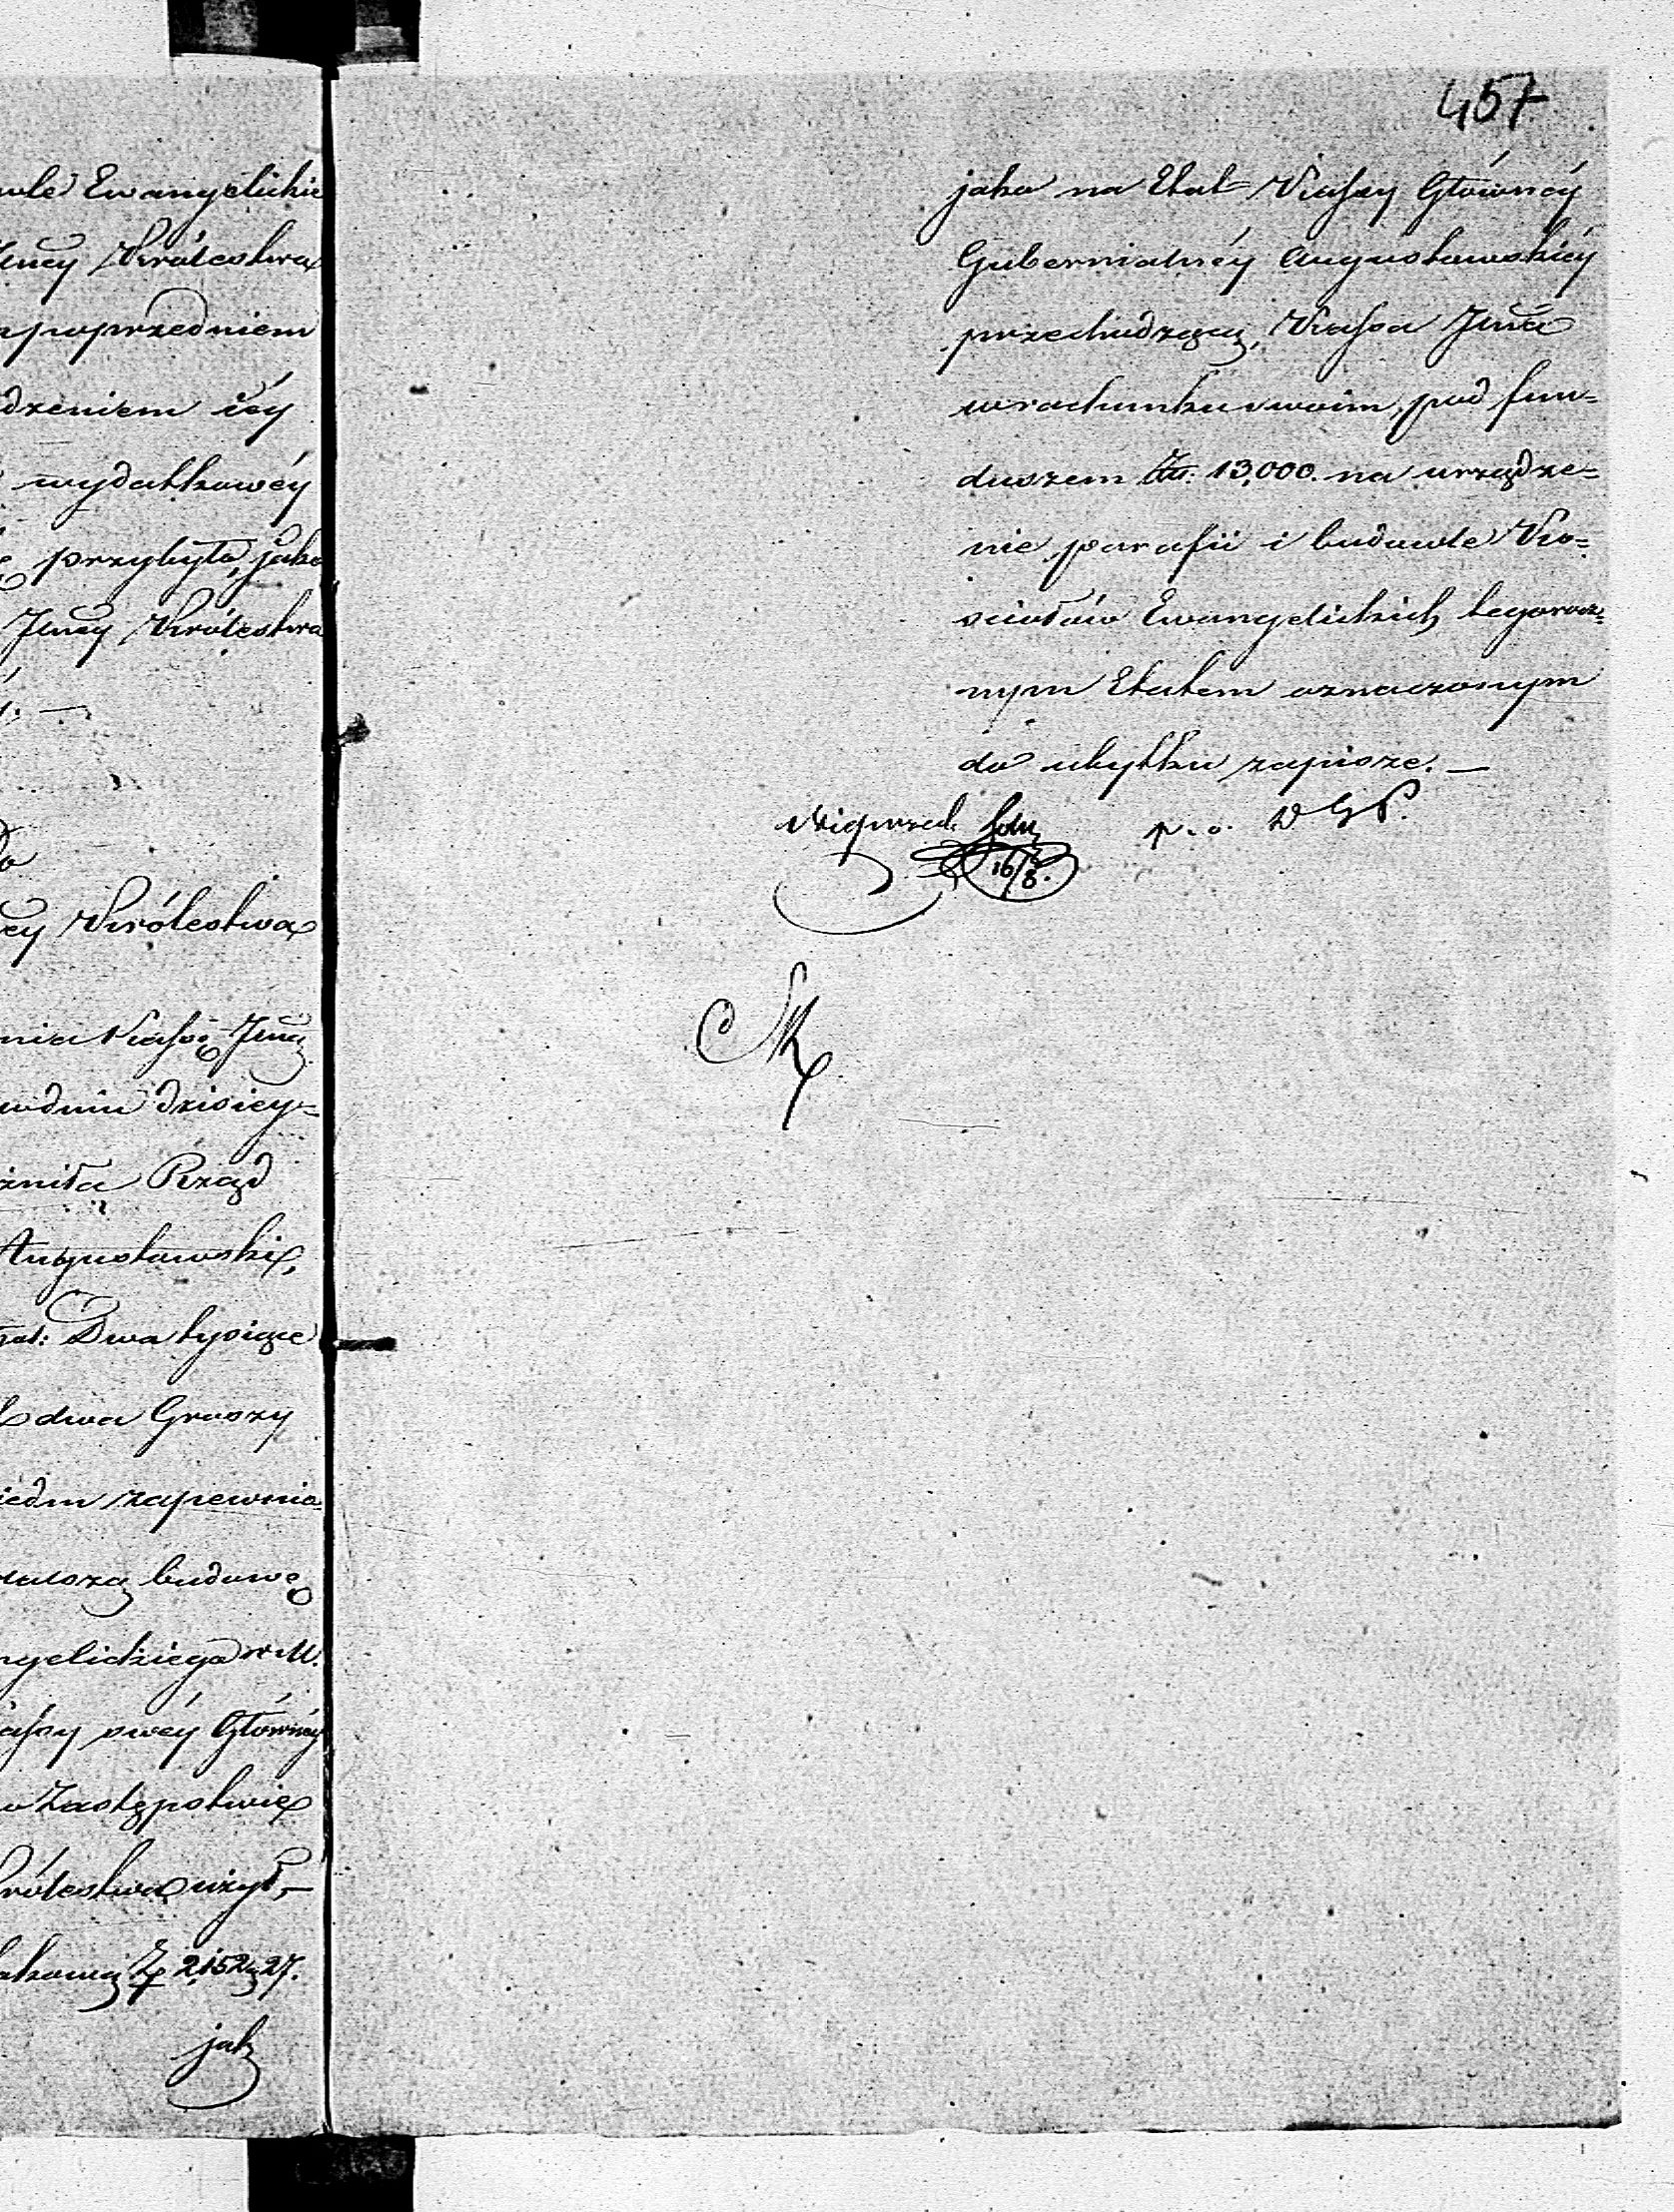 wle Ewangelickie
Jlney Królestwa
poprzedniem
dzeniem iéy
wydatkowéy
przybyła, jako
Jlney Królestwa
do
ey Królestwa
nia Kassę Jlną
wdniu dzisiey=
żniła Rząd
Augustowski,
Dwa tysiące
dwa Groszy
iedm zapewnio
budowę
ngelickiego w M.
assy swéy Główney
w Zastępstwie
Królestwa użył,—
Zł 2,152 g 27.
jak
457
jako na Etat Kassy Głównéy
Gubernialnéy Augustowskiéy
przechodzącą, Kassa Jlna
w rachunku swoim, pod fun=
duszem Złt. 13,000. na urządze=
nie parafii i budowle Ko=
sciołów Ewangelickich tegorocz=
nym Etatem oznaczonym
do ubytku zapisze. —
p. o. D G P.
16/8.